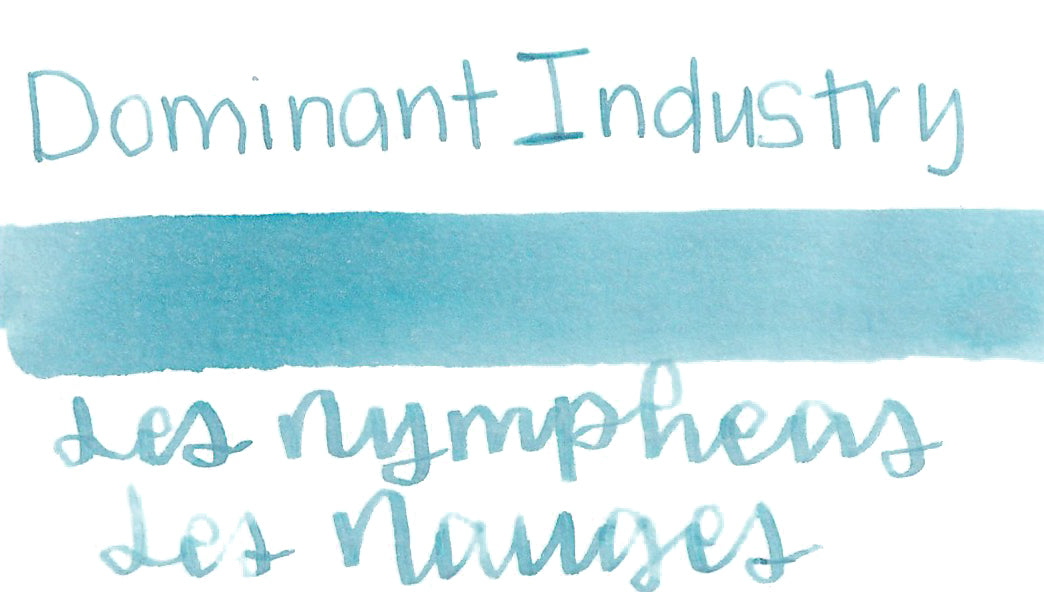 Dominant Industry
Les nympheas
Les Nauges